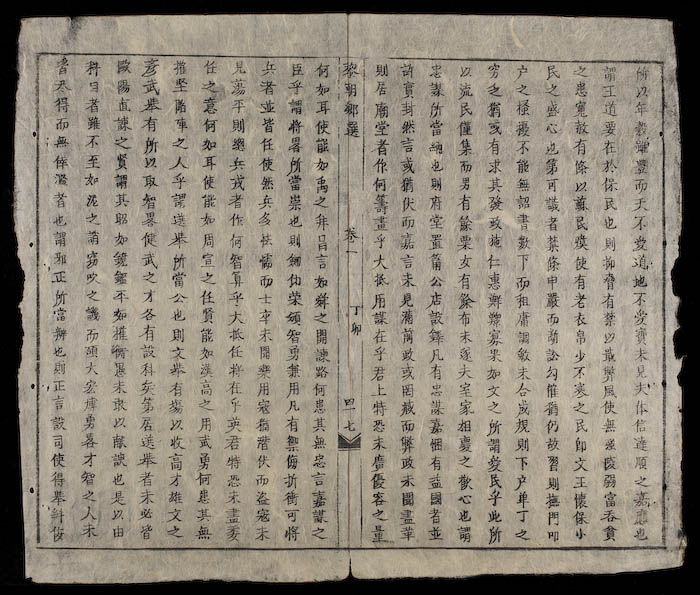 以年穀雖豐而天不愛道地不愛寶未見夫体信達順之嘉應也
謂王道要在於保民也則抑有禁以戢弊風使無強陵弱富吞貧
之患寬敕有條以蘇民瘼使有老衣帛少不寒之民即文王懷保小
民之盛心也第可議者條申嚴而訟勾催猶仍故習則撫門叩
户之擾不能無詔書數下而租庸調斂未合成規則下户單丁之
穷之猶或有求其發政施仁惠鮮鰥寡果如文之所謂爱民乎此所
以流民僅集而男有餘粟女有餘布未遂夫室家相慶之歡心也謂
忠謀所當納也則府堂置公店設鐸凡有忠謀嘉悃有益國者並
許實封然言或猶伏而嘉言未見滿前政或罔裁而弊政未圖盡革
則居廟堂者作何籌畫乎大抵用謀在乎君上特恐未廣優容之量
黎朝鄉選 卷一 丁卯 四十七
何如耳使能如禹之拜昌言如舜之開諫路何患其無忠言嘉謀之
臣乎謂將畧所當崇也則劍仙榮頒智勇兼用凡有禦侮折衝可將
兵者並皆任使然兵多怯懦而士卒未閑樂用寇猶潛伏而盜寇未
見蕩平則總兵戎者作何智算乎大抵任將在乎英君特恐未盡委
任之意何如耳使能如周宣之任賢能如漢高之用武勇何患其無
摧堅陷陣之人乎謂選舉所當公也則文舉有場以收高才雄文之
彥武舉有所以取智畧健武之才各有設科矣第居選舉者未必皆
歐陽直諫之賢謂其昭如鏡鑑平如權衡愚未敢以獻諛也是以由
科目者雖不至如泥之誚窃吹之譏而碩大宏庫勇畧才智之人未
嘗尽得而無倖濫者也謂邪正所當辨也則正言設司使得舉斜俊